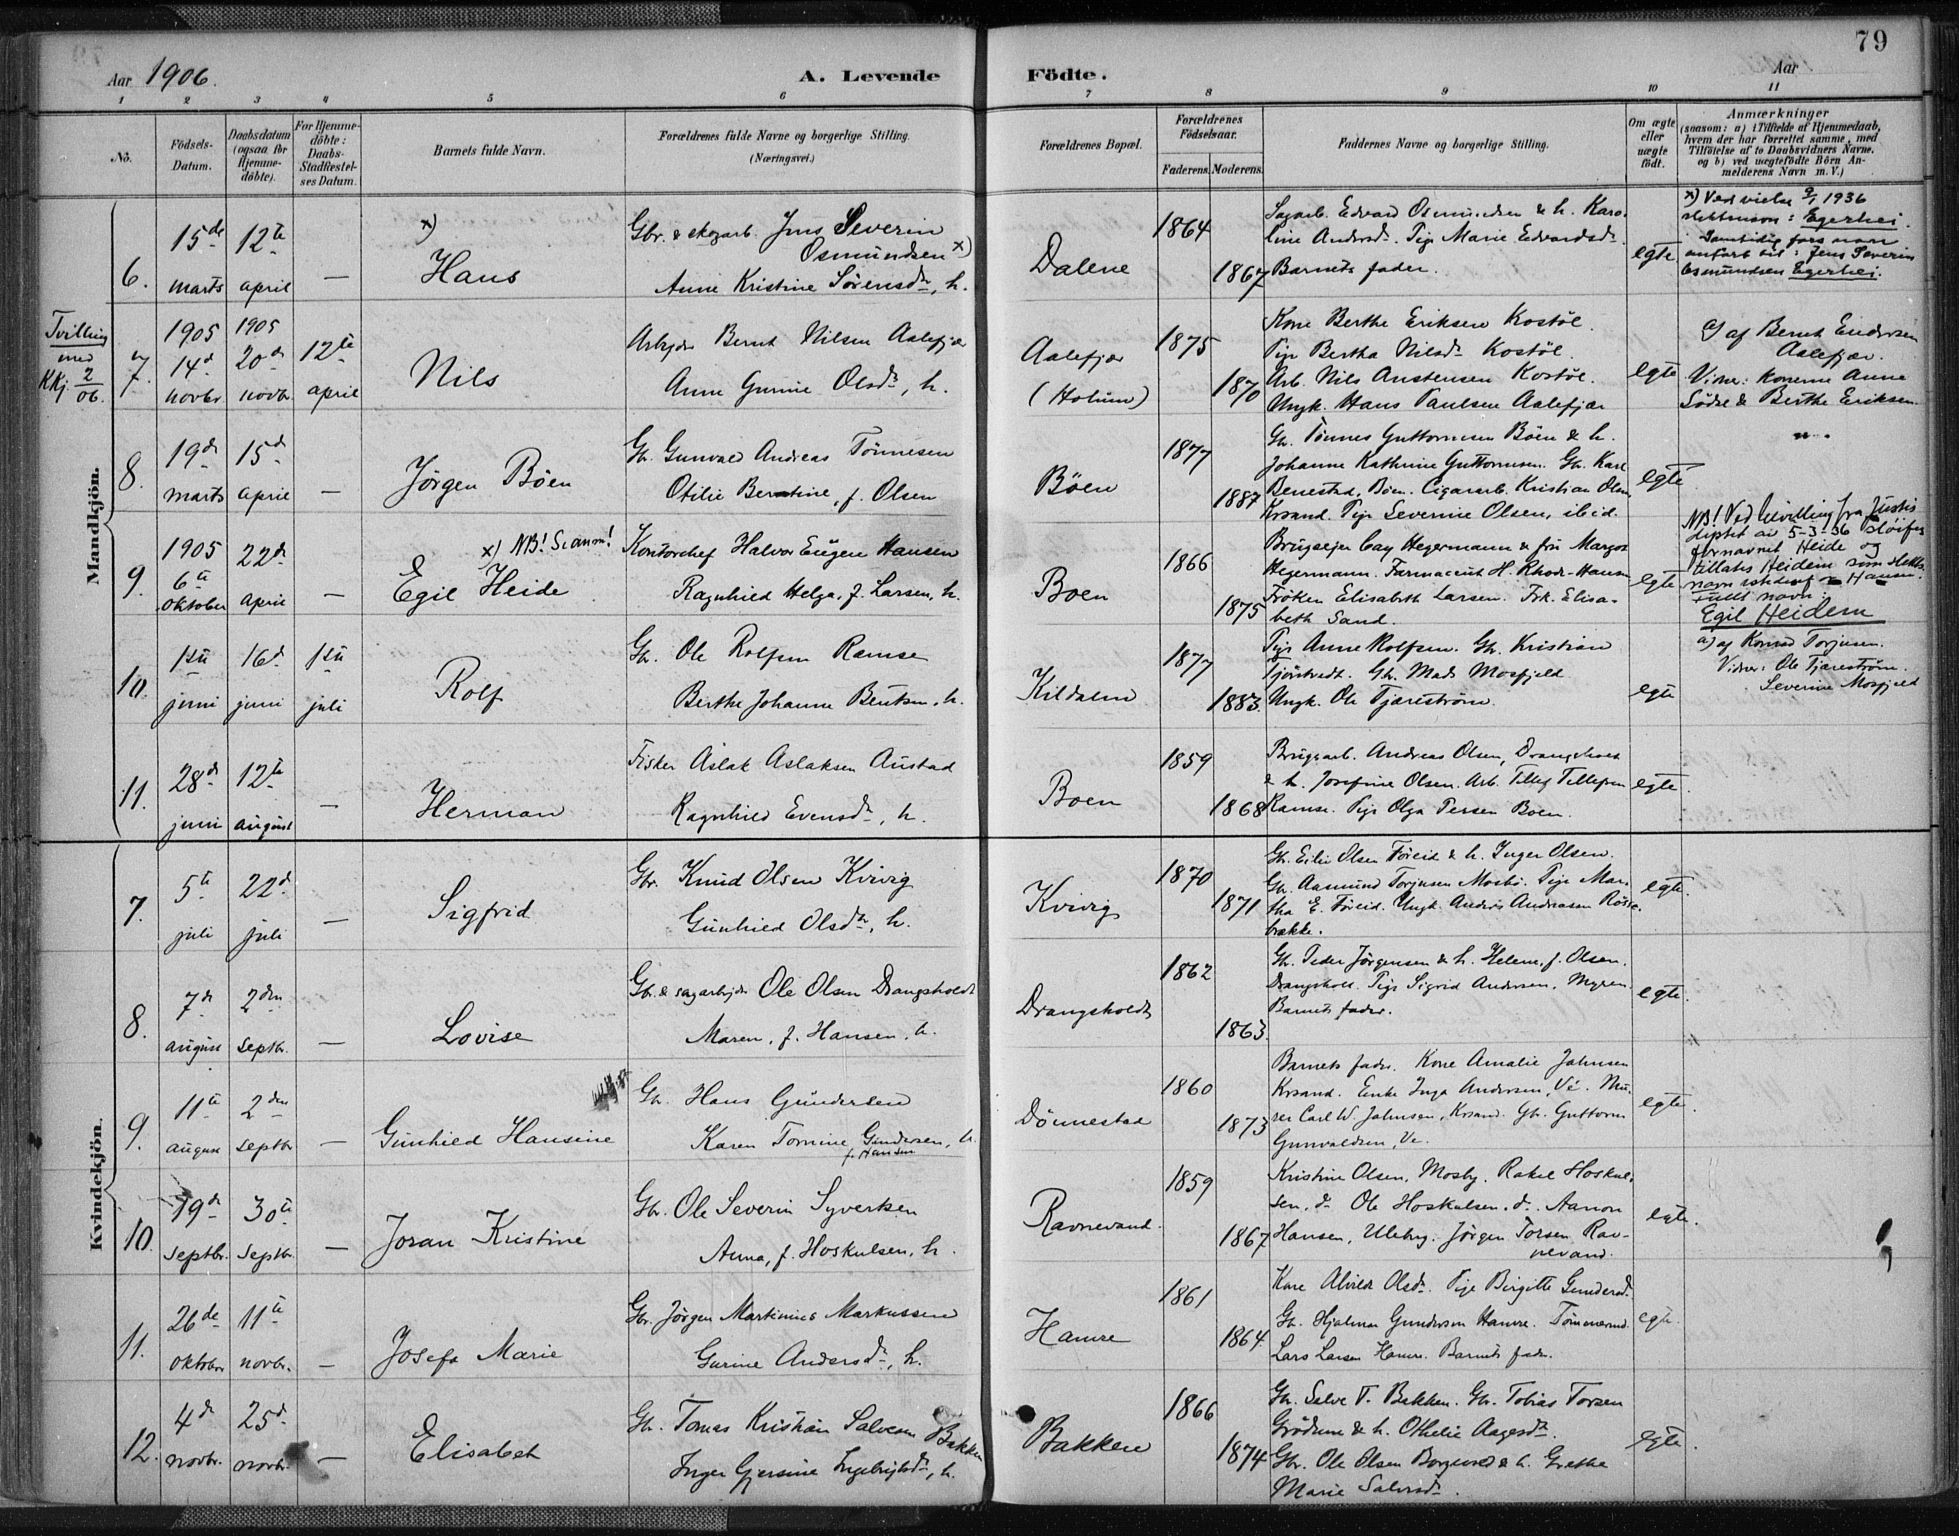 79
Aar 1906.
A. Levende Födte.
Aar
1 2 3 4 5 6 7 8 9 10 11
No.
Födsels-Datum.
Daabsdatum (ogsaa for Hjemme-døbte).
For Hjemme-döbte: Daabs-Stadfæstel-ses Datum.
Barnets fulde Navn.
Forældrenes fulde Navne og borgerlige Stilling.
(Næringsvei.)
Forældrenes Bopæl.
Forældrenes Födselsaar.
Faderens. Moderens.
Faddernes Navne og borgerlige Stilling.
Om ægte eller uægte födt.
Anmærkninger
(saasom: a) i Tilfælde af Hjemmedaab,
hvem der har forrettet samme, med
Tilföielse af to Daabsvidners Navne,
og b) ved uægtefödte Börn An-
melderens Navn m. V.)
Mandkjön.
6.
15de marts
12te april
—
x)
Hans
Gbr. & skogarb. Jens Severin
Osmundsen x)
Anne Kristine Sørensdr, h.
Dalene
1864
1867
Sagarb. Edvard Osmundsen & h. Karo-
line Andersdr. Pige Marie Edvardsdr.
Barnets fader.
egte
x) Ved vielse 9/1 1936
slektsnavn: Egerhei.
Samtidig fars navn
anført til: Jens Severin
Osmundsen Egerhei.
Tvilling
med
KKj. 2/06.
7.
1905 14d novbr
1905 20de novbr.
12te april
Nils
Arbeider Bernt Nilsen Aalefjær
Anne Gurine Olsdr, h.
Aalefjær
(Holum)
1875
1870
Kone Berthe Eriksen Kostøl.
Pige Bertha Nilsdr Kostøl.
Arb. Nils Austensen Kostøl.
Ungk. Hans Paulsen Aalefjær
egte
a) af Bernt Endresen
Aalefjær.
Vidner: konerne Anne
Södal & Berthe Eriksen
8.
19de marts
15d april
—
Jørgen Böen
Gb. Gunvald Andreas Tönnesen
Otilie Berntine, f. Olsen
Böen
1877
1887
Gb. Tönnes Guttormsen Böen & h.
Johanne Kathrine Guttormsen. Gb. Karl
Benestad, Böen. Cigararb. Kristian Olsen,
Krsand. Pige Severine Olsen, ibid.
egte
9.
1905 6te oktober
22de april
—
x) NB! Se anm!
Egil Heide
Kontorchef Halvor Eugen Hansen
Ragnhild Helga, f. Larsen, h.
Boen
1866
1875
Brugseier Cay Hegermann & fru Margot
Hegermann. Farmaceut H. Rhode-Hansen
Frøken Elisabeth Larsen. Frk. Elisa-
beth Sand.
egte
NB! Ved bevilling fra Justis
dept. av 5-3-36 sløifes
fornavnet Heide og
tillates Heidem som slekts
navn istedenfor Hansen.
Fullt navn:
Egil Heidem
10.
1ste juni
16de juni
1ste juli
Rolf
Gb. Ole Rolfsen Ramse
Berthe Johanne Bentsen, h.
Kildalen
1877
1883
Pige Anne Rolfsen. Gb. Kristian
Tjöstvedt. Gb. Mads Mosfjeld
Ungk. Ole Tjærestrøm.
egte
a) af Konrad Torjusen.
Vidner: Ole Tjærestrøm.
Severine Mosfjeld
11.
28d juni
12te august
—
Herman
Fisker Aslak Aslaksen Austad
Ragnhild Evensdr, h.
Boen
1859
1868
Brugsarb. Andreas Olsen, Drangsholt
& h. Josefine Olsen. Arb. Tellef Tellefsen
Ramse. Pige Olga Persen Boen.
egte.
Kvindekjön.
7.
5te juli
22d juli
—
Sigfrid
Gbr. Knud Olsen Kvivig
Gunhild Olsdr, h.
Kvivig
1870
1871
Gb. Eilev Olsen Föreid & h. Inger Olsen.
Gb. Aasmund Torjusen Mosbö. Pige Mar-
tha E. Föreid. Ungk. Anders Andreasen Rosse-
brække.
egte.
8.
7de august
2den septbr.
—
Lovise
Gbr. & sagarbeider Ole Olsen Drangsholdt
Maren, f. Hansen, h.
Drangsholdt
1862
1863.
Gb. Peder Jørgensen & h. Helene, f. Olsen.
Drangsholt. Pige Sigrid Andersen, Myren.
Barnets fader.
egte.
9.
11te august
2den septbr
—
Gunhild Hansine
Gb. Hans Gundersen
Karen Tomine Gundersen, h.
f. Hansen
Dönnestad
1860
1873
Barnets fader. Kone Amalie Jahnsen
Krsand. Enke Inga Andersen, Ve. Mu-
rer Carl W. Jahnsen, Krsand. Gb. Guttorm
Gunvaldsen, Ve.
egte.
10.
19de septbr.
30te septbr.
—
Joran Kristine
Gbr. Ole Severin Syvertsen
Anna, f. Hoskulsen, h.
Ravnevand.
1859
1867
Kristine Olsen, Mosby. Rakel Hoskul-
sen, do. Ole Hoskulsen, do. Aanon
Hansen, Uleberg. Jörgen Torsen Rav-
nevand.
egte.
11.
26de oktober
11te novbr.
—
Josefa Marie
Gbr. Jørgen Martinius Markussen
Gurine Andersdr, h.
Hamre
1861
1864.
Kone Alvilde Olsdr. Pige Birgitte Gundersdr.
Gb. Hjalmar Gundersen Hamre. Tømmermd.
Lars Larsen Hamre. Barnets fader.
egte.
12.
4de novbr.
25de novbr.
—
Elisabet
Gb. Tomas Kristian Salvesen Bakken
Inger Gjersine Ingebrigtsdr, h.
Bakken
1866
1874
Gb. Salve T. Bakken. Gbr. Tobias Torsen
Grødum & h. Othelie Aagesdr.
Gbr. Ole Olsen Borgvold & h. Grethe
Marie Salvesdr.
egte.